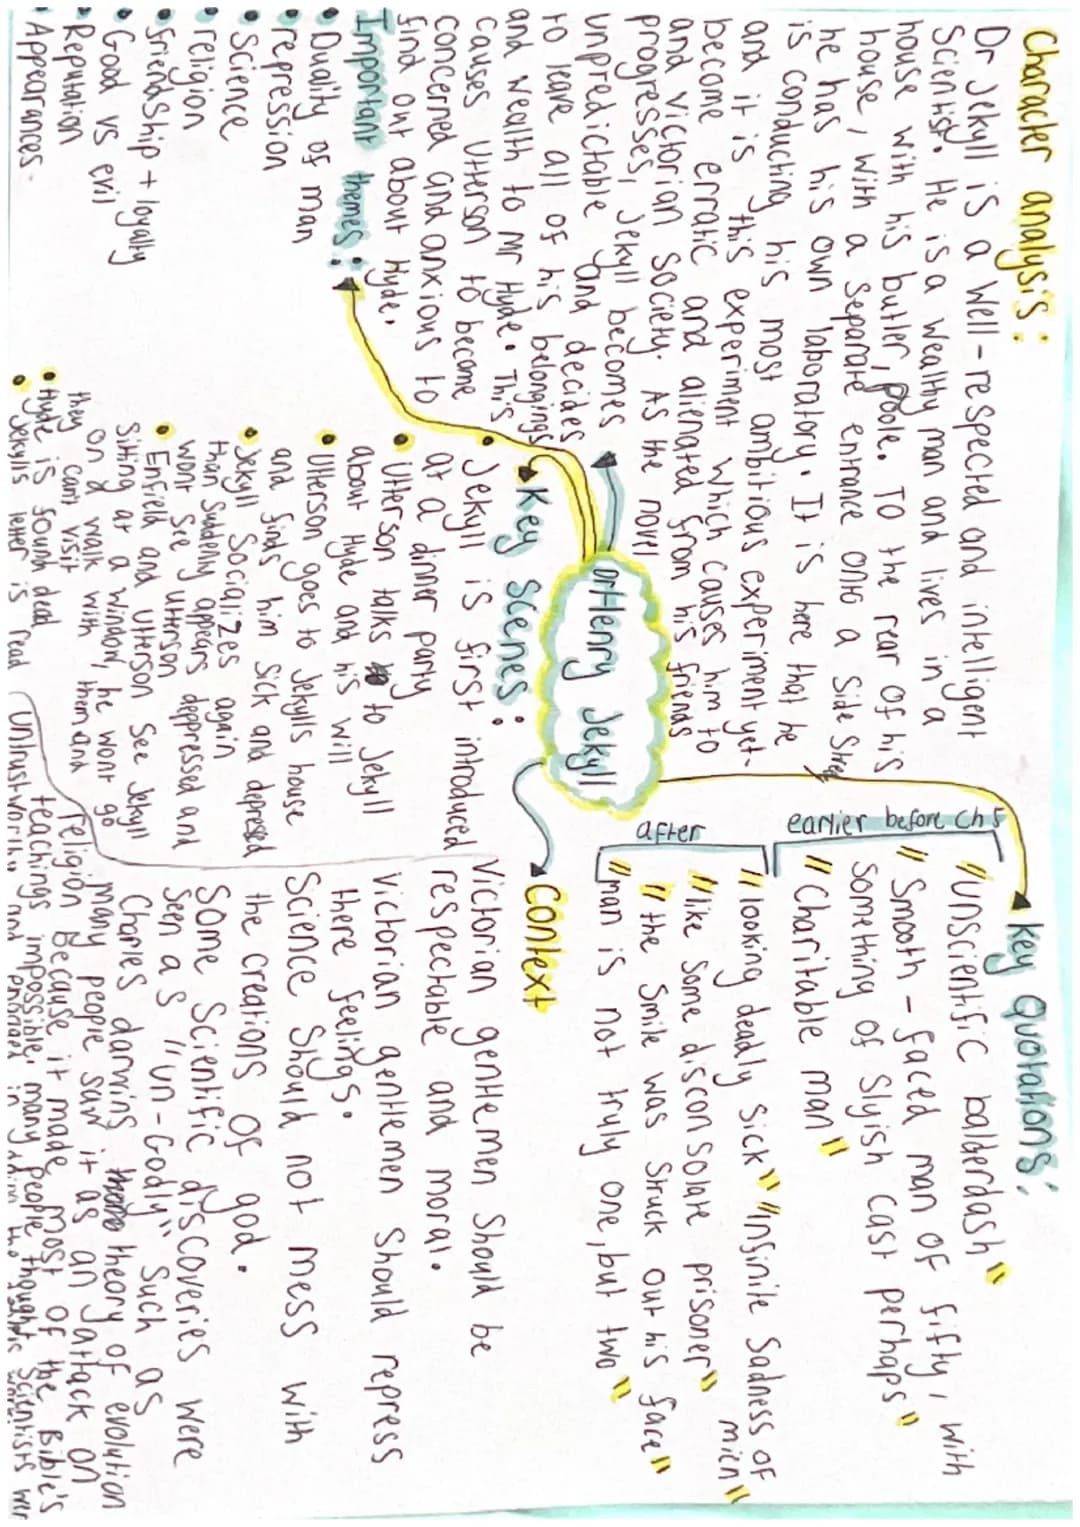 Character analysis:
Dr Jekyll is a well-respected and intelligent
Scientist. He is a wealthy man and lives in a
house with his butler, poole. To the rear of his
house, with a separate entrance onto a side
he has his own laboratory. It is here that he
is conducting his most ambitious experiment yet-
and it is this experiment which causes him to
become erratic and alienated from his friends
and victorian society. As the novel
progresses, Jekyll becomes
unpredictable and decides
to leave all of his belongings
and wealth to Mr Hyde. This
causes Utterson to become
concerned and anxious to
find out about Hyde.
Important themes:
• Duality of man
• repression
• Science
• religion
• friendship + loyalty
• Good vs evil
• Reputation
• Appearances.
Dr Henry Jekyll
Key Scenes:
• Jekyll is first introduced
at a dinner party
• Utterson talks to Jekyll
about Hyde and his will
• Utterson goes to Jekylls house
and finds him sick and depressed
• Jekyll Socializes again
then suddenly appears depressed and
wont see Utterson
• Enfield and Utterson see Jekyll
sitting at a window, he wont go
on a walk with them and
they cant visit
• Hyde is found dead
• Jekylls letter is read
Key Quotations:
earlier before Ch 5
"Unscientific balderdash"
"Smooth-faced man of fifty, with
something of slyish cast perhaps"
"Charitable man"
after
"looking deadly sick" "infinite sadness of
mien"
"like some disconsolate prisoner"
"the smile was struck out his face"
"man is not truly one, but two"
Context
Victorian gentlemen should be
respectable and moral.
victorian gentlemen should repress
there feelings.
Science should not mess with
the creations of god.
Some scientific discoveries were
seen as "un-Godly" such as
Charles darwins theory of evolution
many people saw it as an attack on
religion because it made most of the Bible's
teachings impossible, many people thought scientists wer
untrustworthy and